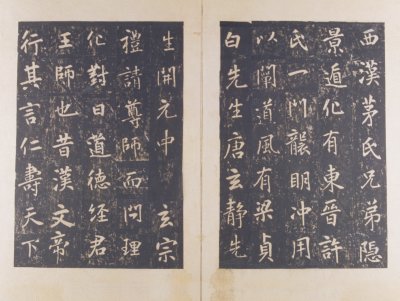 西漢茅氏兄弟隱
景遁化有東晉許
氏一門襲明冲用
以闡道風有梁貞
白先生唐玄靜先
生開元中 玄宗
禮請尊師而問理
化對曰道德經君
王師也昔漢文帝
行其言仁壽天下